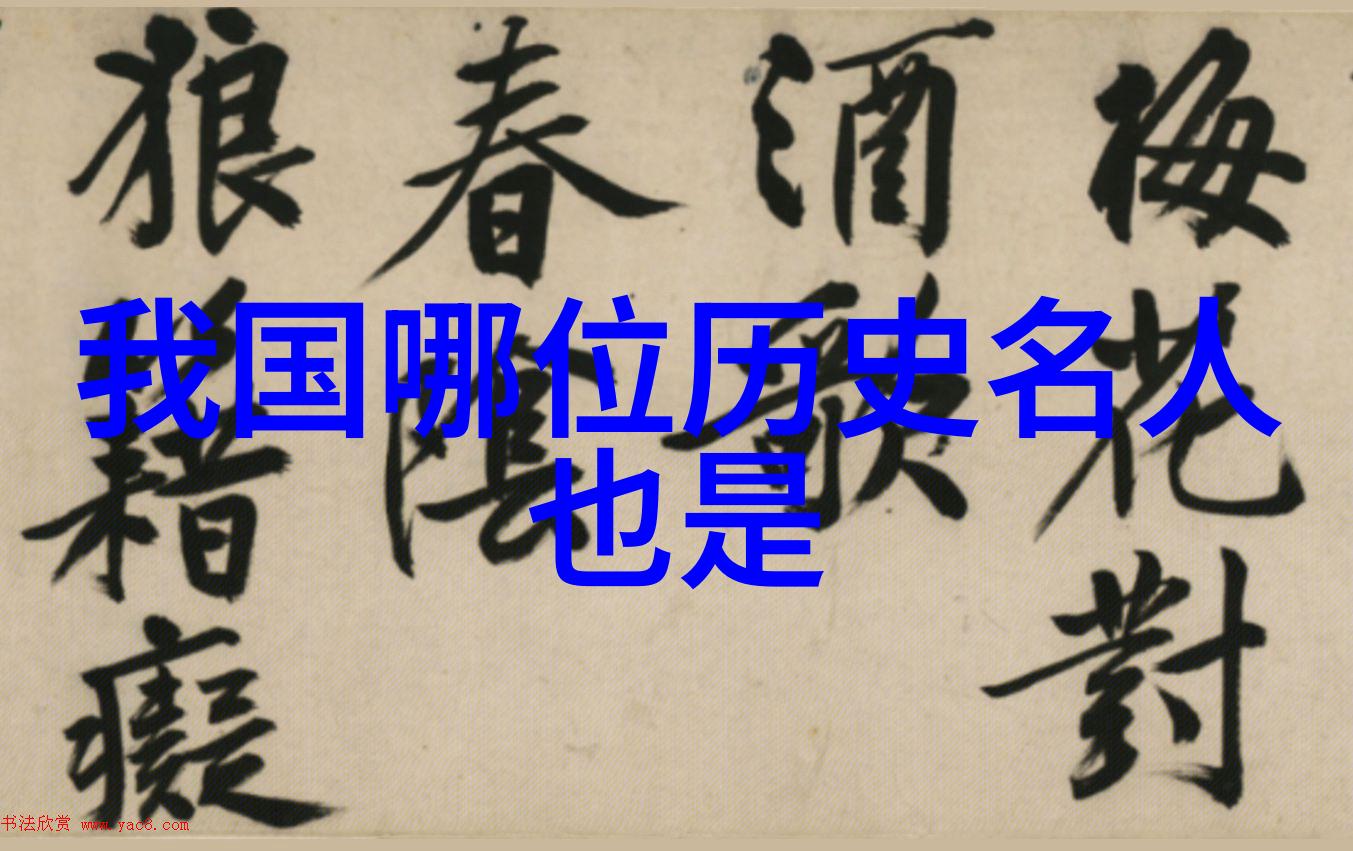 我国哪位历史名人
也是
梅花對
酒
春
狼籍癡
书法欣赏 www.yac8.com